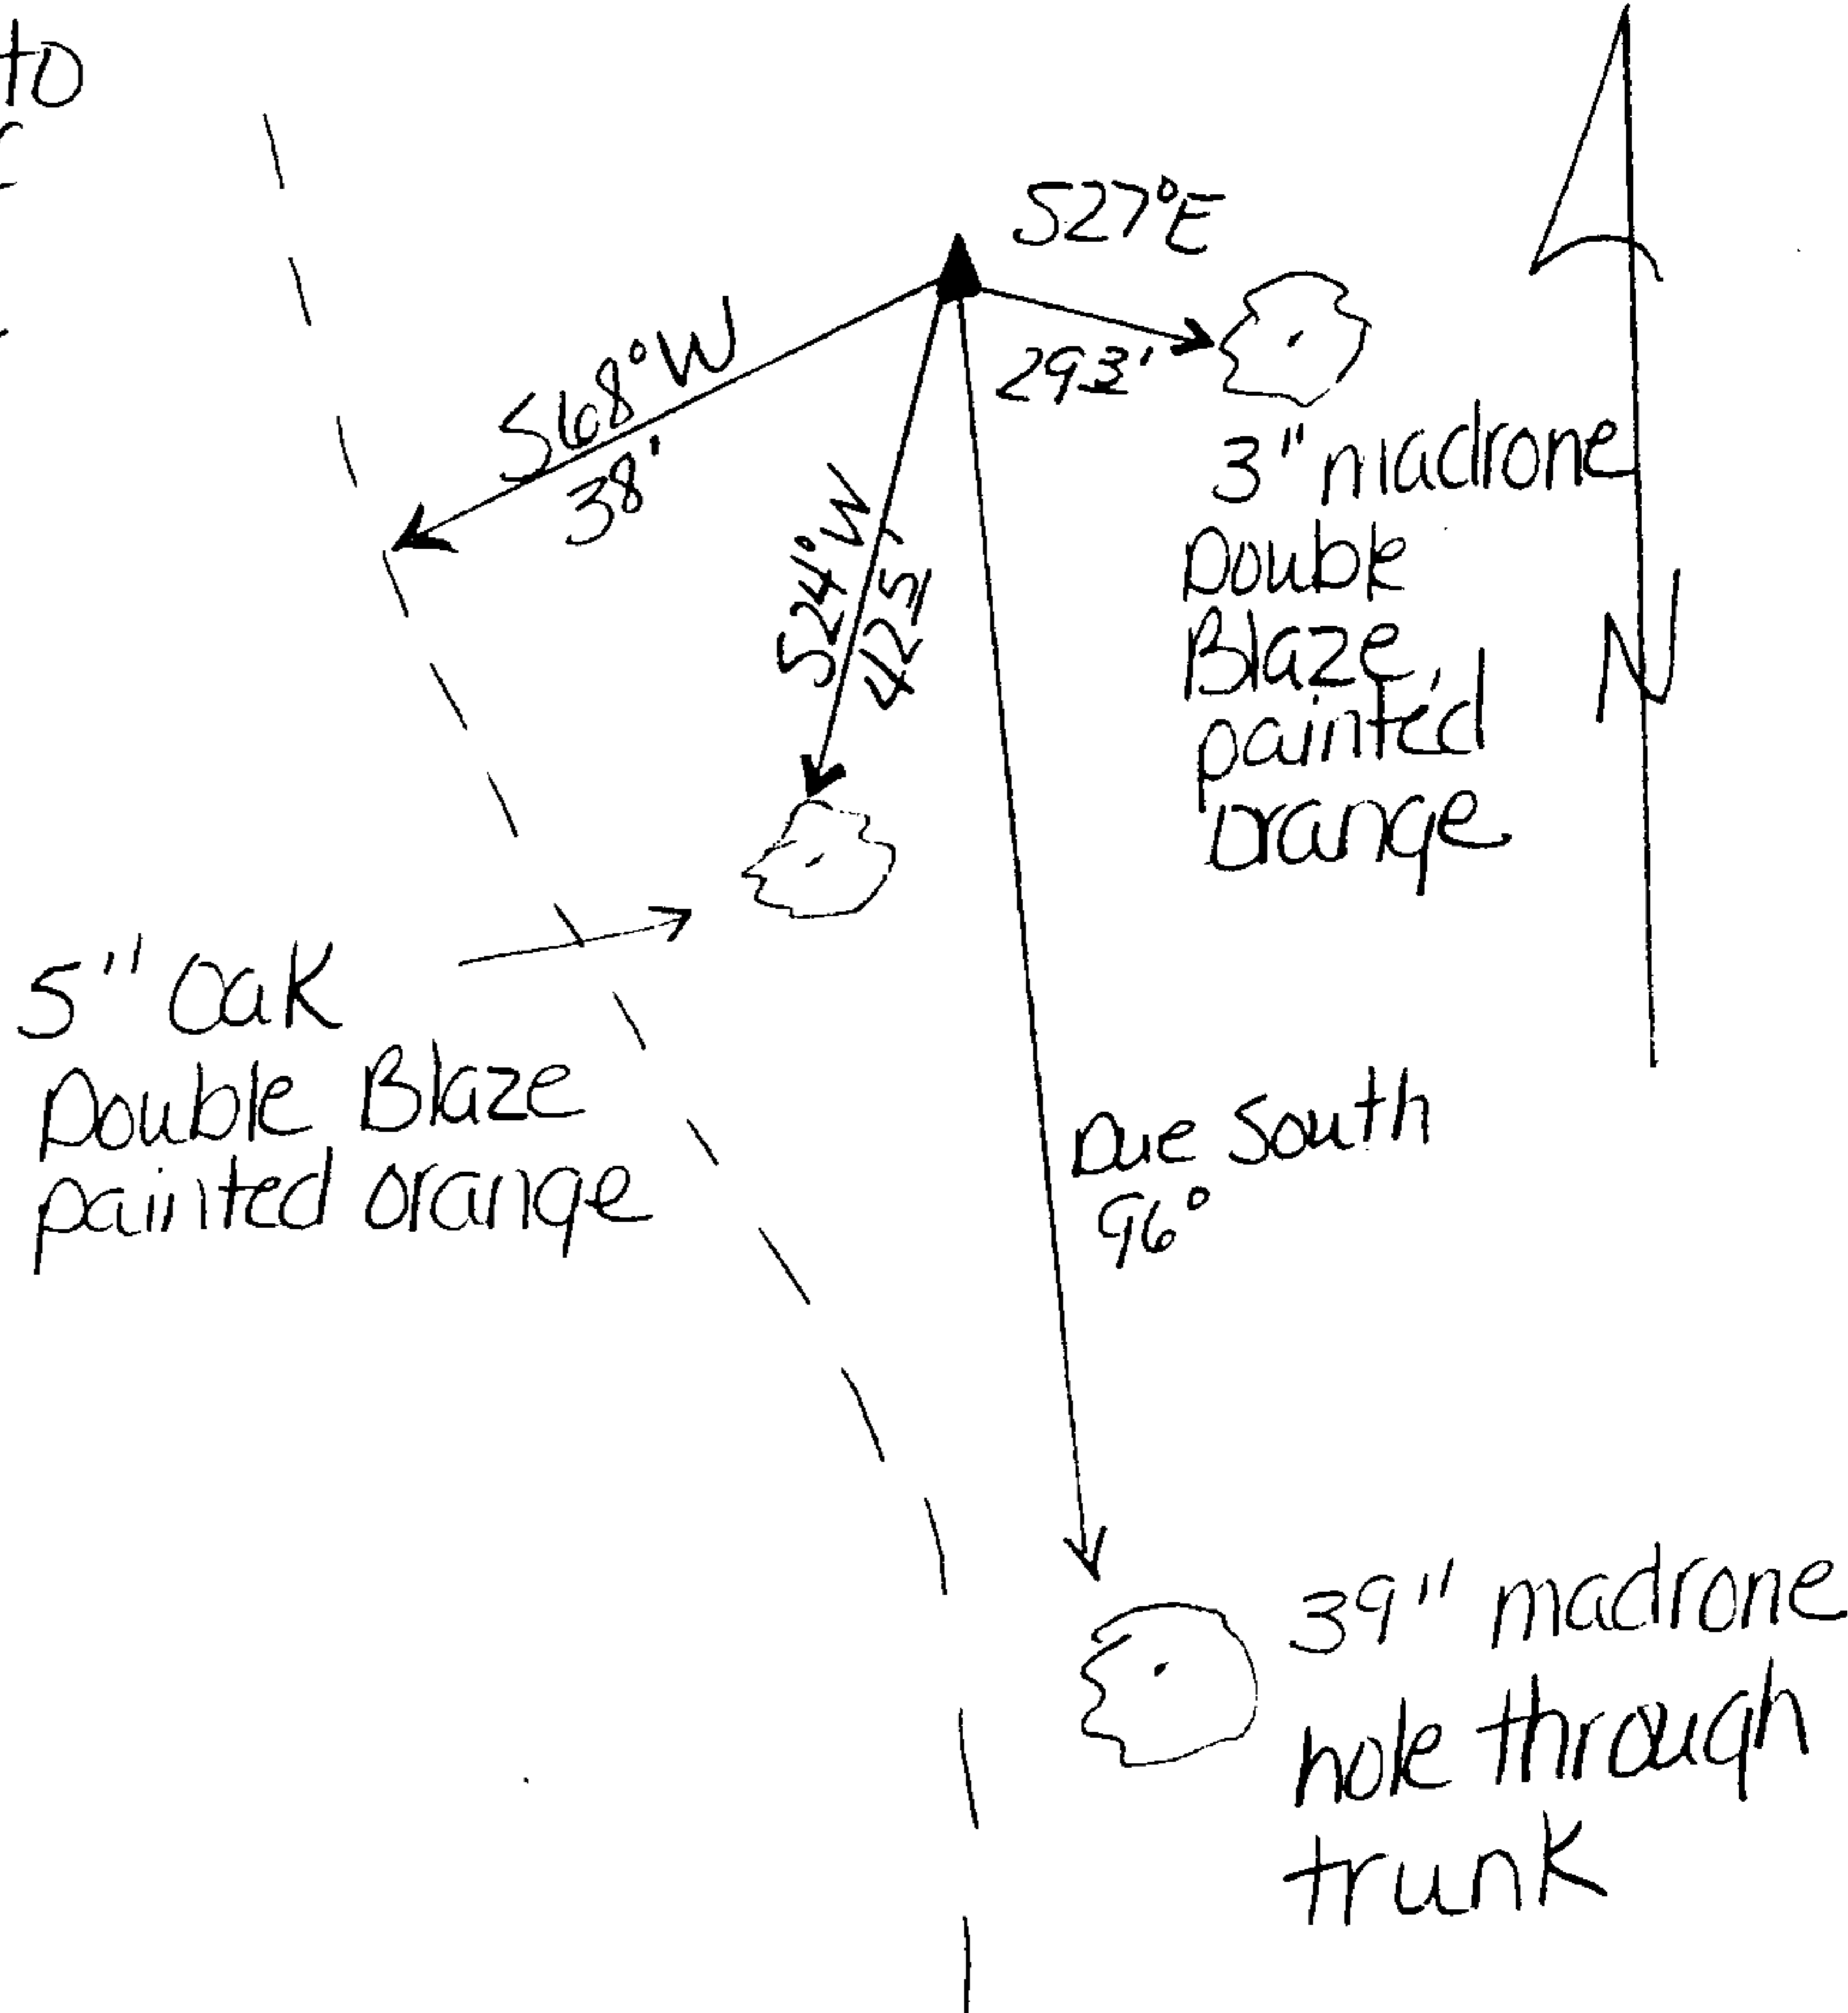 to
S27°E
293'
S68°W
38'
S24°W
425'
3" madrone
Double
Blaze,
painted
orange
N
5" Oak
Double Blaze
painted orange
Due South
96°
39" madrone
hole through
trunk